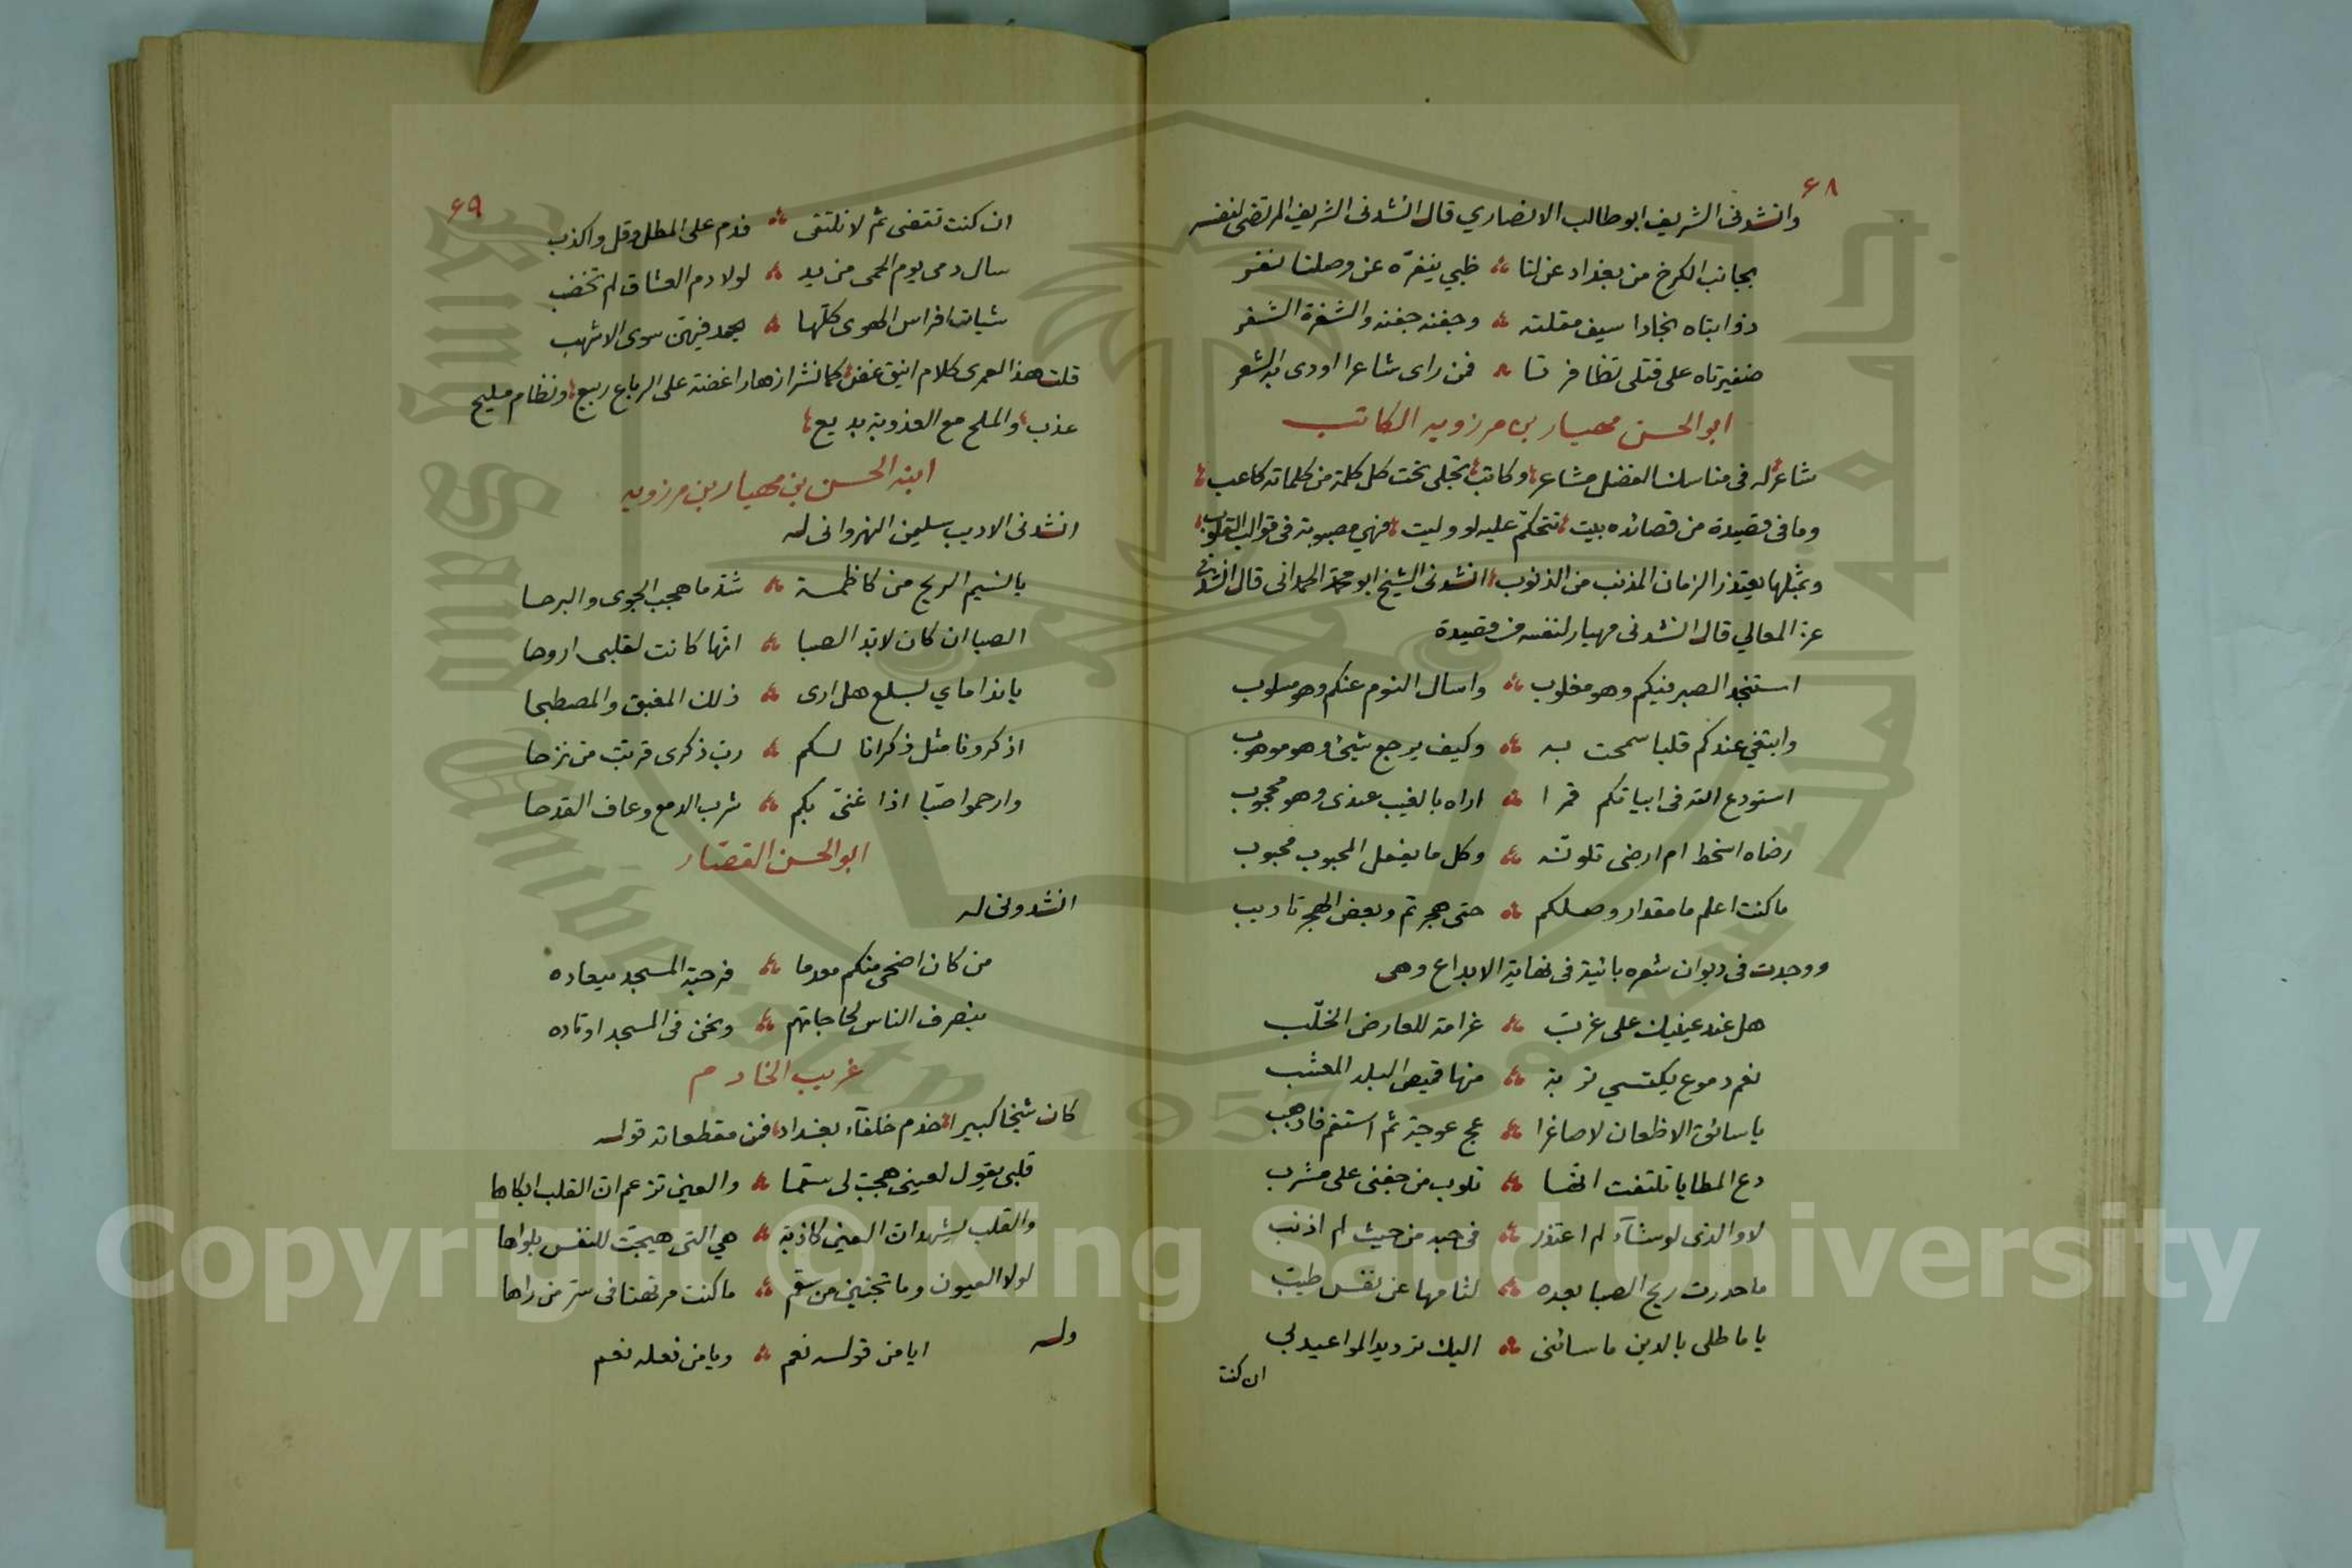 ٦٨
وانشدنى الشريف ابو طالب الانصاري قال انشدنى الشريف المرتضى لنفسه
بجانب الكرخ من بغداد عن لنا ۞ ظبي ينفرّه عن وصلنا نفر
ذؤابتاه نجادا سيف مقلته ۞ وجفنه جفنه والشفرة الشفر
ضفيرتاه على قتلى تظافرتا ۞ فمن راى شاعرا اودى به الشعر
ابو الحسن مهيار بن مرزويه الكاتب
شاعر له فى مناسك الفضل مشاعر وكاتب تجلى تحت كل كلمة من كلماته كاعب
وما فى قصيدة من قصائده بيت تتحكم عليه لو وليت فهي مصبوبة فى قوالب القلوب
وبمثلها يعتذر الزمان المذنب من الذنوب انشدنى الشيخ ابو محمد الحمدانى قال انشدنى
عز المعالي قال انشدنى مهيار لنفسه من قصيدة
استنجد الصبر فيكم وهو مغلوب ۞ واسال النوم عنكم وهو مسلوب
وابتغي عندكم قلبا سمحت به ۞ وكيف يرجع شيئ وهو موهوب
استودع الله فى ابياتكم قمرا ۞ اراه بالغيب عندى وهو محجوب
رضاه اسخط ام ارضى تلونه ۞ وكل ما يفعل المحبوب محبوب
ما كنت اعلم ما مقدار وصلكم ۞ حتى هجرتم وبعض الهجر تاديب
ووجدت فى ديوان شعره بائية فى نهاية الابداع وهى
هل عند عينيك على غرب ۞ غرامة للعارض الخلّب
نعم دموع يكتسي تربه ۞ منها قميص البلد المعشب
يا سائق الاظعان لا صاغرا ۞ عج عوجة ثم استقم فاذهب
دع المطايا تلتفت انها ۞ تلوب من جفنى على مشرب
لا والذى لو شآء لم اعتذر ۞ فى حبه من حيث لم اذنب
ما حدرت ريح الصبا بعده ۞ لثامها عن نفس طيب
يا ماطلى بالدين ما سائنى ۞ اليك ترديد المواعيد لي
ان كنت
٦٩
ان كنت تقضى ثم لا نلتقى ۞ فدم على المطل وقل واكذب
سال دمى يوم الحمى من يد ۞ لولا دم العشاق لم تخضب
شيات افراس الهوى كلها ۞ يحمد فيهن سوى الاشهب
قلت هذا لعمرى كلام انيق غض كما نشر ازهارا غضة على الرباع ربيع ونظام مليح
عذب والملح مع العذوبة بديع
ابنه الحسن بن مهيار بن مرزويه
انشدنى الاديب سليمن النهروانى له
يا نسيم الريح من كاظمة ۞ شد ما هجب الجوى والبرحا
الصبا ان كان لا بد الصبا ۞ انها كانت لقلبى اروحا
يا نداماي بسلع هل ارى ۞ ذلك المغبق والمصطبحا
اذكرونا مثل ذكرانا لكم ۞ رب ذكرى قربت من نزحا
وارحموا صبا اذا غنى بكم ۞ شرب الدمع وعاف القدحا
ابو الحسن القصار
انشدونى له
من كان اضحى منكم معدما ۞ فرحبة المسجد ميعاده
ينصرف الناس لحاجاتهم ۞ ونحن فى المسجد اوتاده
غريب الخادم
كان شيخا كبيرا خدم خلفآء بغداد فمن مقطعاته قوله
قلبى يقول لعينى هجت لى سقما ۞ والعين تزعم ان القلب ابكاها
والقلب يشهد ان العين كاذبة ۞ هي التى هيجت للنفس بلواها
لولا العيون وما تجنين من سقم ۞ ما كنت مرتهنا فى ستر من راها
وله
ايا من قوله نعم ۞ ويا من فعله نعم